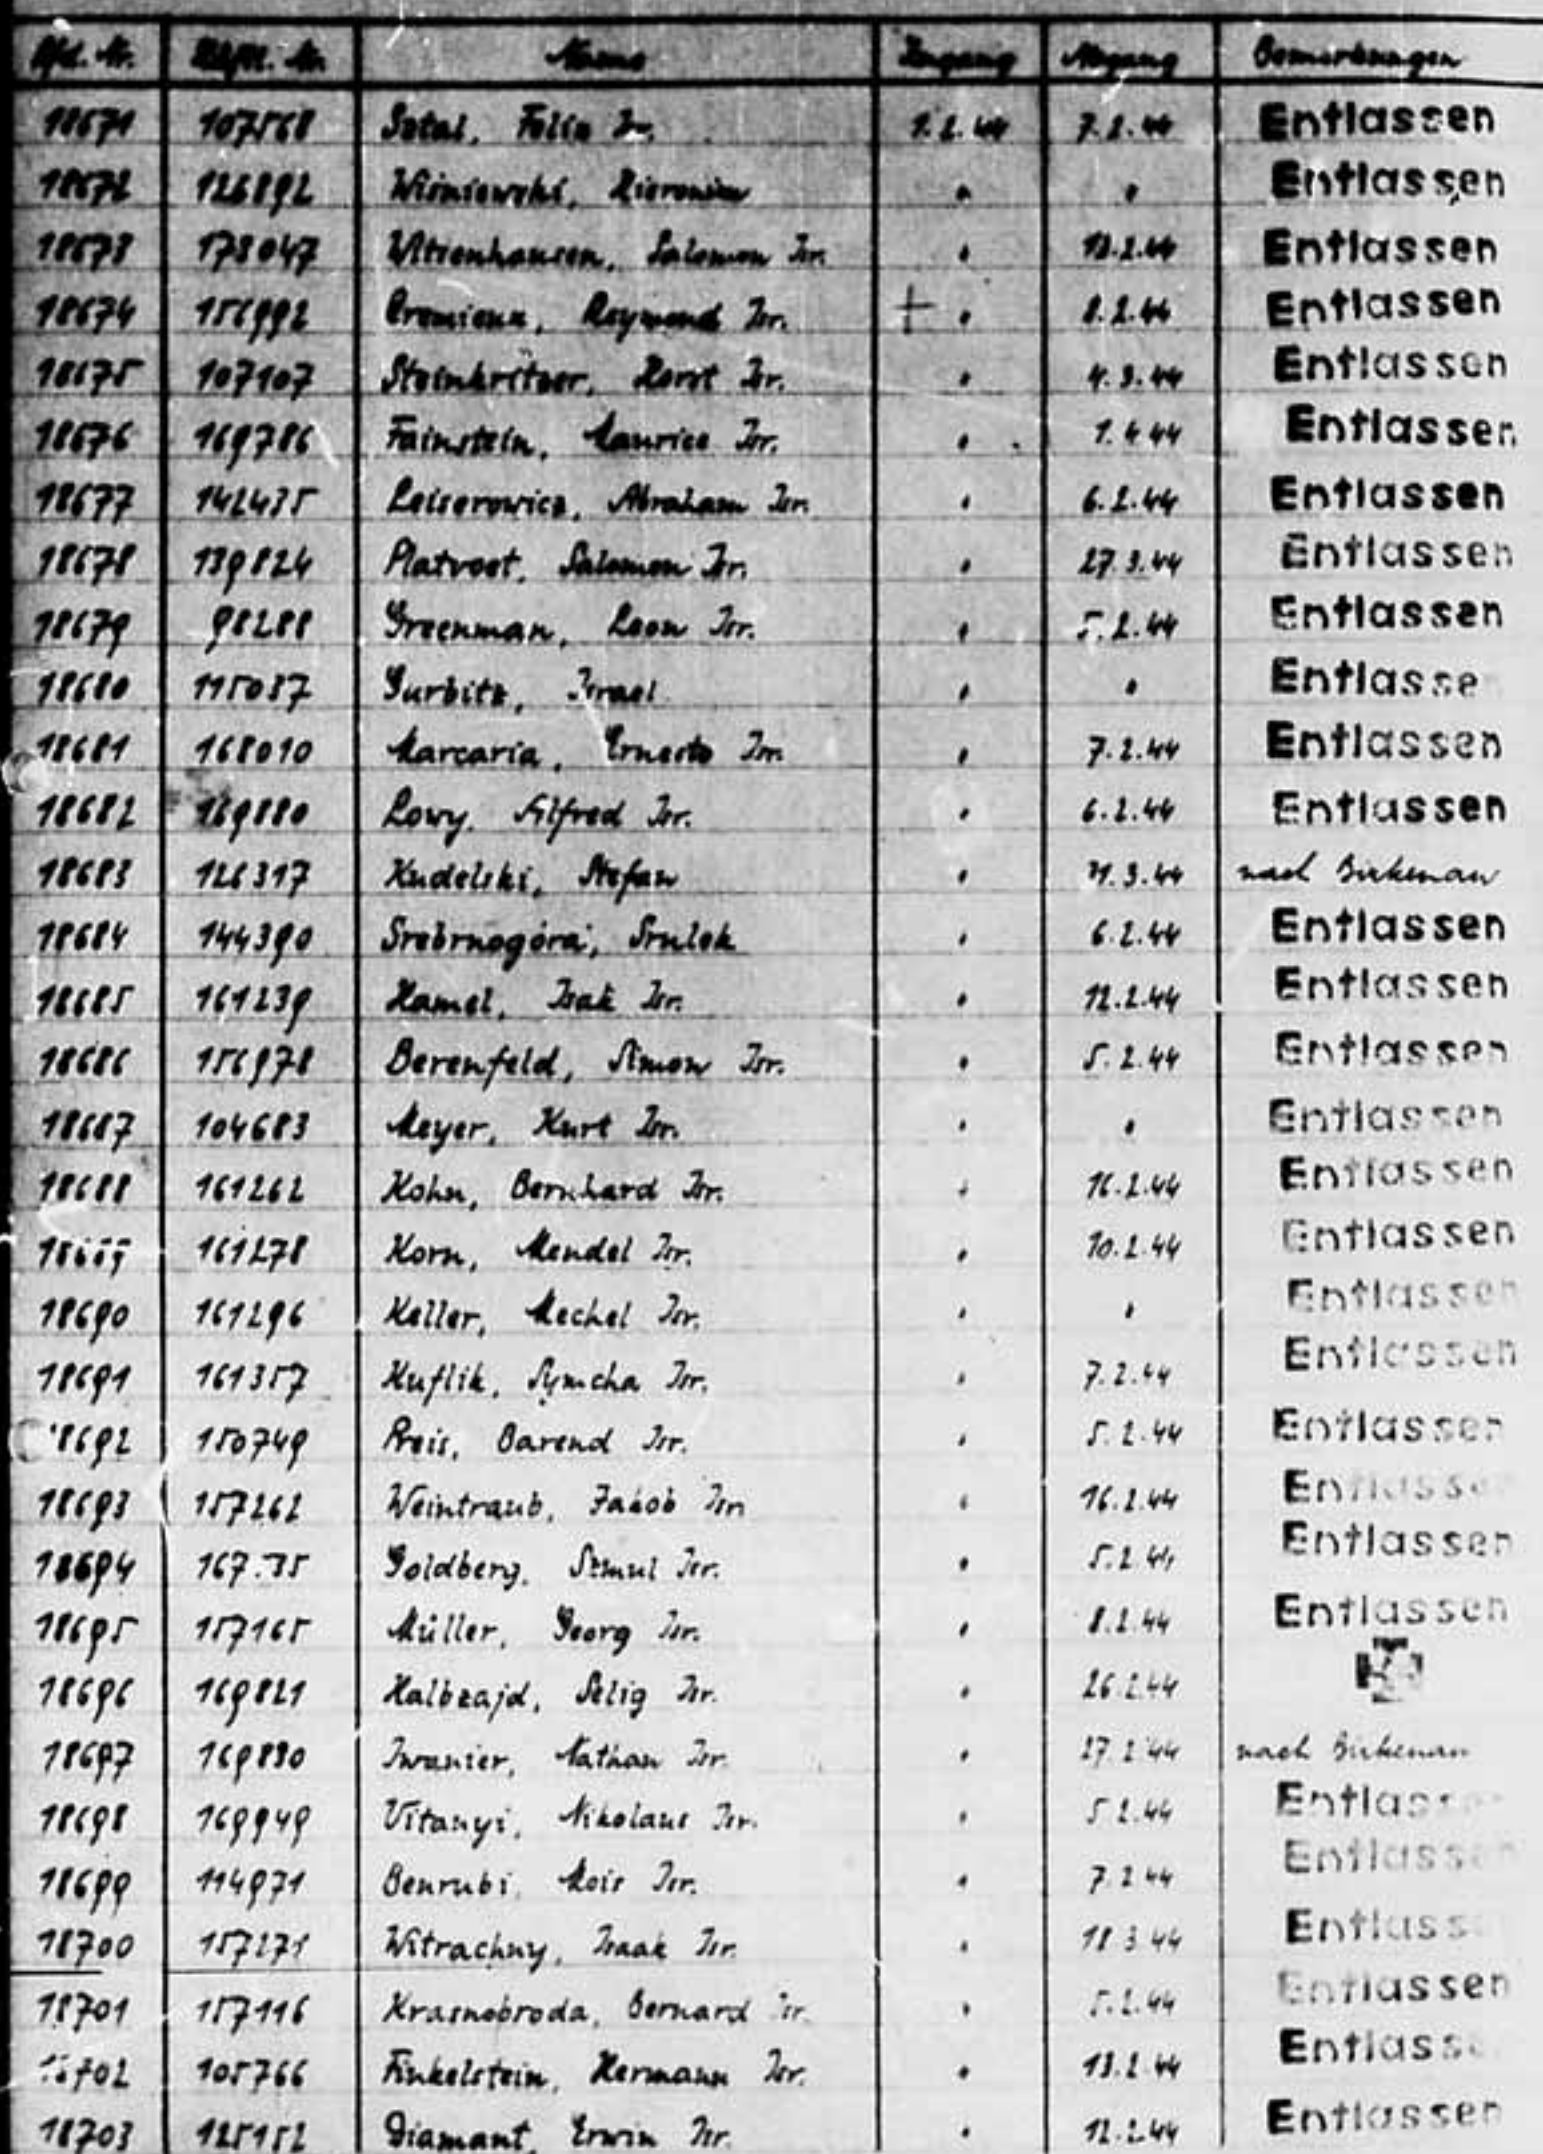 Lfd. Nr. Häftl. Nr. Name Zugang Abgang Bemerkungen
18671 107568 Felix Isr. 1.2.44 7.2.44 Entlassen
18672 126892 Wiśniewski, Hieronim " " Entlassen
18673 Salomon Isr. " Entlassen
18674 156992 Cremieux, Raymond Isr. + " 8.2.44 Entlassen
18675 107107 Steinkritzer, Horst Isr. " 4.3.44 Entlassen
18676 169786 Fainstein, Maurice Isr. " 1.4.44 Entlassen
18677 142435 Leiserowicz, Abraham Isr. " 6.2.44 Entlassen
18678 139824 Platvoet, Salomon Isr. " 27.3.44 Entlassen
18679 98288 Greenman, Leon Isr. " 5.2.44 Entlassen
18680 115087 Gurbitz, Israel " " Entlassen
18681 168010 Marcaria, Ernesto Isr. " 7.2.44 Entlassen
18682 169880 Lowy, Alfred Isr. " 6.2.44 Entlassen
18683 126317 Kudelski, Stefan " nach Birkenau
18684 144390 Srebrnogóra, Srulek " 6.2.44 Entlassen
18685 161239 Hamel, Isak Isr. " 12.2.44 Entlassen
18686 156978 Berenfeld, Simon Isr. " 5.2.44 Entlassen
18687 104683 Meyer, Kurt Isr. " " Entlassen
18688 161262 Kohn, Bernhard Isr. " 16.2.44 Entlassen
18689 161278 Korn, Mendel Isr. " 10.2.44 Entlassen
18690 161296 Keller, Mechel Isr. " " Entlassen
18691 161357 Kuflik, Symcha Isr. " 7.2.44 Entlassen
18692 150749 Preis, Barend Isr. " 5.2.44 Entlassen
18693 157262 Weintraub, Jakob Isr. " 16.2.44 Entlassen
18694 Goldberg, Szmul Isr. " 5.2.44 Entlassen
18695 157165 Müller, Georg Isr. " 8.2.44 Entlassen
18696 169821 Halbzajd, Selig Isr. " 26.2.44
18697 169830 Iwanier, Nathan Isr. " 27.2.44 nach Birkenau
18698 169949 Vitanyi, Nikolaus Isr. " 5.2.44 Entlassen
18699 114971 Benrubi, Mois Isr. " 7.2.44 Entlassen
18700 157271 Witrachny, Isaak Isr. " 18.3.44 Entlassen
18701 157116 Krasnobroda, Bernard Isr. " 5.2.44 Entlassen
18702 105766 Finkelstein, Hermann Isr. " 13.2.44 Entlassen
18703 125152 Diamant, Erwin Isr. " 12.2.44 Entlassen